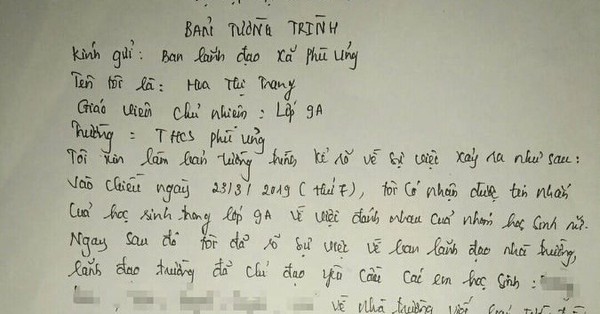 BẢN TƯỜNG TRÌNH
Kính gửi: Ban lãnh đạo xã Phù Ủng
Tên tôi là: Hoa Thị Trang
Giáo viên chủ nhiệm: Lớp 9A
Trường: THCS Phù Ủng
Tôi xin làm bản tường trình kể rõ về sự việc xảy ra như sau:
Vào chiều ngày 23/3/2019 (thứ 7), tôi có nhận được tin nhắn
của học sinh trong lớp 9A về việc đánh nhau của nhóm học sinh nữ.
Ngay sau đó tôi đã số sự việc về ban lãnh đạo nhà trường,
lãnh đạo trường đã chỉ đạo yêu cầu các em học sinh:
về nhà trường viết